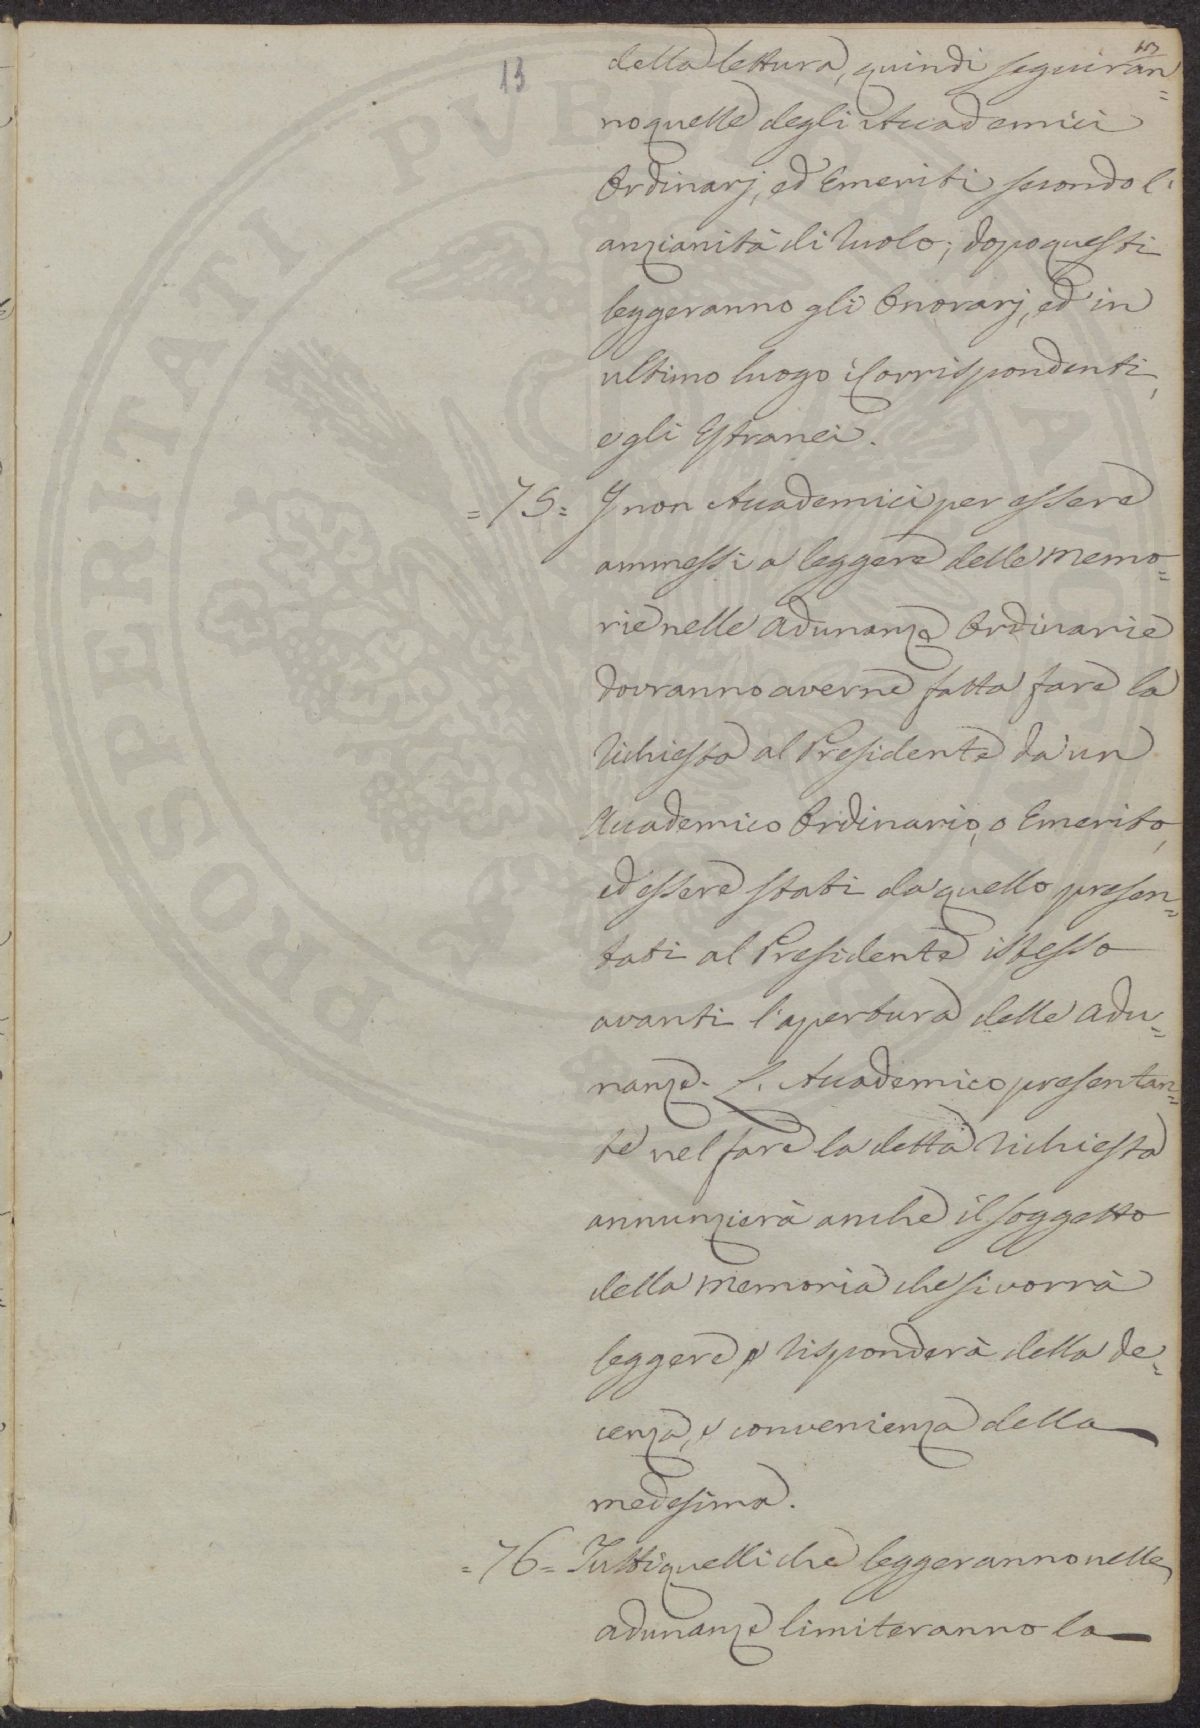 13
della lettura, quindi seguiran=
no quelle degli Accademici
Ordinarj, ed Emeriti secondo l'
anzianità di Ruolo; dopo questi
leggeranno gli Onorarj, ed in
ultimo luogo i Corrispondenti,
e gli Estranei.
=75= I non Accademici per essere
ammessi a leggere delle Memo=
rie nelle Adunanze Ordinarie
dovranno averne fatta fare la
Richiesta al Presidente da un
Accademico Ordinario, o Emerito,
ed essere stati da quello presen=
tati al Presidente istesso
avanti l'apertura delle Adu=
nanze. L'Accademico presentan=
te nel fare la detta Richiesta
annunzierà anche il soggetto
della Memoria che si vorrà
leggere, e Risponderà della de=
cenza, e convenienza della
medesima.
=76= Tutti quelli che leggeranno nelle
adunanze limiteranno la
PROSPERITATI PVBLICAE AVGENDAE